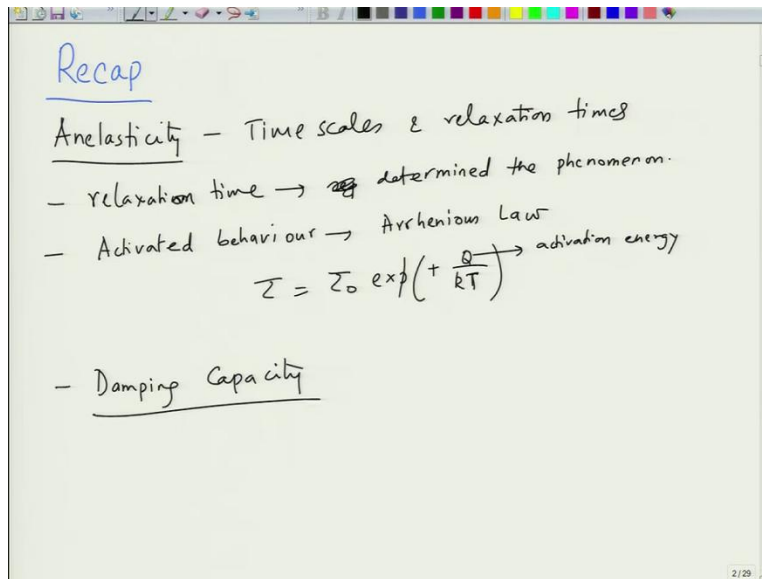 Recap
Anelasticity – Time scales & relaxation times
– relaxation time → determined the phenomenon.
– Activated behaviour → Arrhenious Law
τ = τ₀ exp(+ Q/kT) → activation energy
– Damping Capacity
2/29